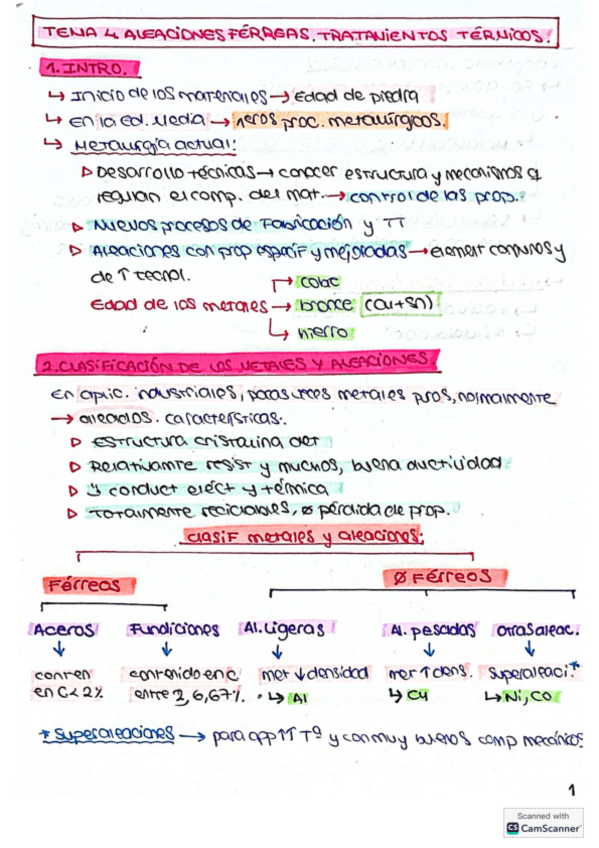 TEMA 4. ALEACIONES FÉRREAS. TRATAMIENTOS TÉRMICOS.
1. INTRO.
↳ Inicio de los materiales → Edad de piedra
↳ en la ed. Media → 1eros proc. metalúrgicos.
↳ Metalurgia actual:
▷ Desarrollo técnicas → conocer estructura y mecanismos q
regulan el comp. del mat. → control de las prop.
▷ Nuevos procesos de Fabricación y TT
▷ Aleaciones con prop especíF y mejoradas → element comunes y
de ↑ tecnol.
→ cobre
Edad de los metales → bronce (Cu+Sn)
↳ hierro
2. CLASIFICACIÓN DE LOS METALES Y ALEACIONES.
En aplic. industriales, pocas veces metales puros, normalmente
→ aleados. características:
▷ Estructura cristalina det
▷ Relativamte resist y muchos, buena ductividad
▷ conduct eléct y térmica
▷ Totalmente reciclables, ∅ pérdida de prop.
Clasif metales y aleaciones:
Férreos ∅ Férreos
Aceros Fundiciones Al. Ligeras Al. pesadas Otras aleac.
↓ ↓ ↓ ↓ ↓
conten contenido en C met ↓ densidad met ↑ dens. Superaleaci.*
en C < 2% entre 2, 6,67%. ↳ Al ↳ Cu ↳ Ni, CO
* Superaleaciones → para app ↑↑ Tª y con muy buenos comp mecánicos
1
Scanned with
CS CamScanner